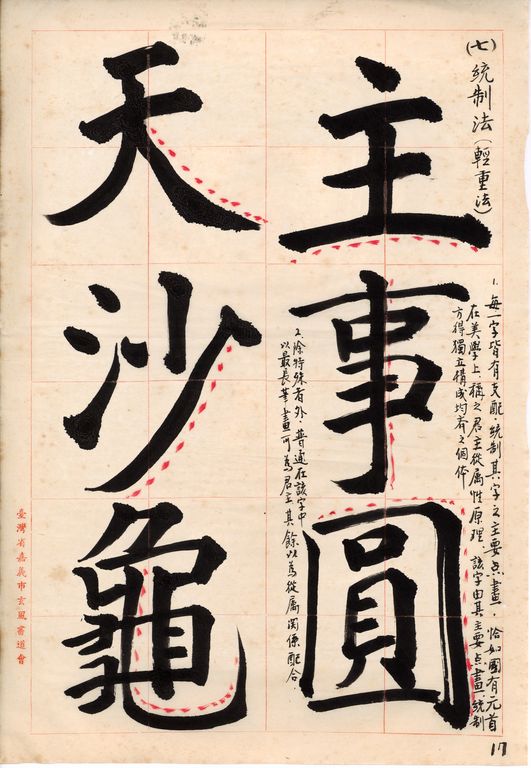 (七)統制法(輕重法)
主事圓
1.每一字皆有支配.統制其字之主要点畫,恰如國有元首
在美學上,稱之君主從屬性原理.該字由其主要点畫.統制
方得獨立構成均有之個体
天沙龜
2.除特殊者外.普遍在該字中
以最長筆畫可為君主其餘以為從屬関係配合.
臺灣省嘉義市玄風書道會
17